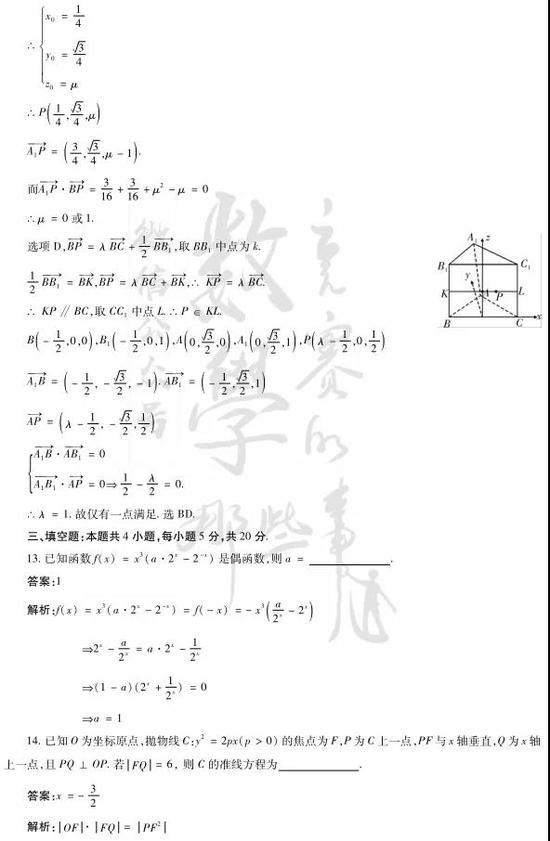 ∴ { x₀ = 1/4
y₀ = √3/4
z₀ = μ
∴ P(1/4, √3/4, μ)
A₁P→ = (3/4, √3/4, μ − 1).
而A₁P→ · BP→ = 3/16 + 3/16 + μ² − μ = 0
∴ μ = 0 或 1.
选项 D, BP→ = λ BC→ + 1/2 BB₁→, 取 BB₁ 中点为 k.
1/2 BB₁→ = BK→, BP→ = λ BC→ + BK→, ∴ KP→ = λ BC→.
∴ KP // BC, 取 CC₁ 中点 L. ∴ P ∈ KL.
B(−1/2,0,0), B₁(−1/2,0,1), A(0,√3/2,0), A₁(0,√3/2,1), P(λ − 1/2,0,1/2)
A₁B→ = (−1/2, −√3/2, −1). AB₁→ = (−1/2, √3/2, 1)
AP→ = (λ − 1/2, −√3/2, 1/2)
{ A₁B→ · AB₁→ = 0
A₁B₁→ · AP→ = 0 ⇒ 1/2 − λ/2 = 0.
∴ λ = 1. 故仅有一点满足. 选 BD.
A₁ z
B₁ C₁
y
K A P L
B C x
三、填空题:本题共 4 小题,每小题 5 分,共 20 分.
13. 已知函数 f(x) = x³(a·2ˣ − 2⁻ˣ) 是偶函数,则 a = ________.
答案:1
解析:f(x) = x³(a·2ˣ − 2⁻ˣ) = f(−x) = −x³(a/2ˣ − 2ˣ)
⇒2ˣ − a/2ˣ = a·2ˣ − 1/2ˣ
⇒(1 − a)(2ˣ + 1/2ˣ) = 0
⇒a = 1
14. 已知 O 为坐标原点,抛物线 C:y² = 2px(p > 0) 的焦点为 F,P 为 C 上一点,PF 与 x 轴垂直,Q 为 x 轴
上一点,且 PQ ⊥ OP. 若|FQ| = 6, 则 C 的准线方程为________.
答案:x = −3/2
解析:|OF|·|FQ| = |PF²|
数学竞赛的那些事